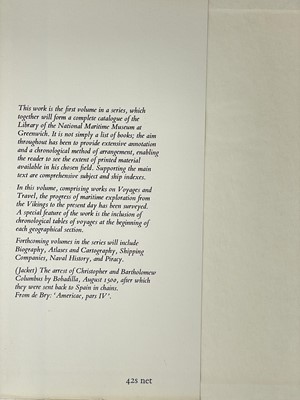 This work is the first volume in a series, which
together will form a complete catalogue of the
Library of the National Maritime Museum at
Greenwich. It is not simply a list of books; the aim
throughout has been to provide extensive annotation
and a chronological method of arrangement, enabling
the reader to see the extent of printed material
available in his chosen field. Supporting the main
text are comprehensive subject and ship indexes.
In this volume, comprising works on Voyages and
Travel, the progress of maritime exploration from
the Vikings to the present day has been surveyed.
A special feature of the work is the inclusion of
chronological tables of voyages at the beginning of
each geographical section.
Forthcoming volumes in the series will include
Biography, Atlases and Cartography, Shipping
Companies, Naval History, and Piracy.
(Jacket) The arrest of Christopher and Bartholomew
Columbus by Bobadilla, August 1500, after which
they were sent back to Spain in chains.
From de Bry: 'Americae, pars IV'.
42s net